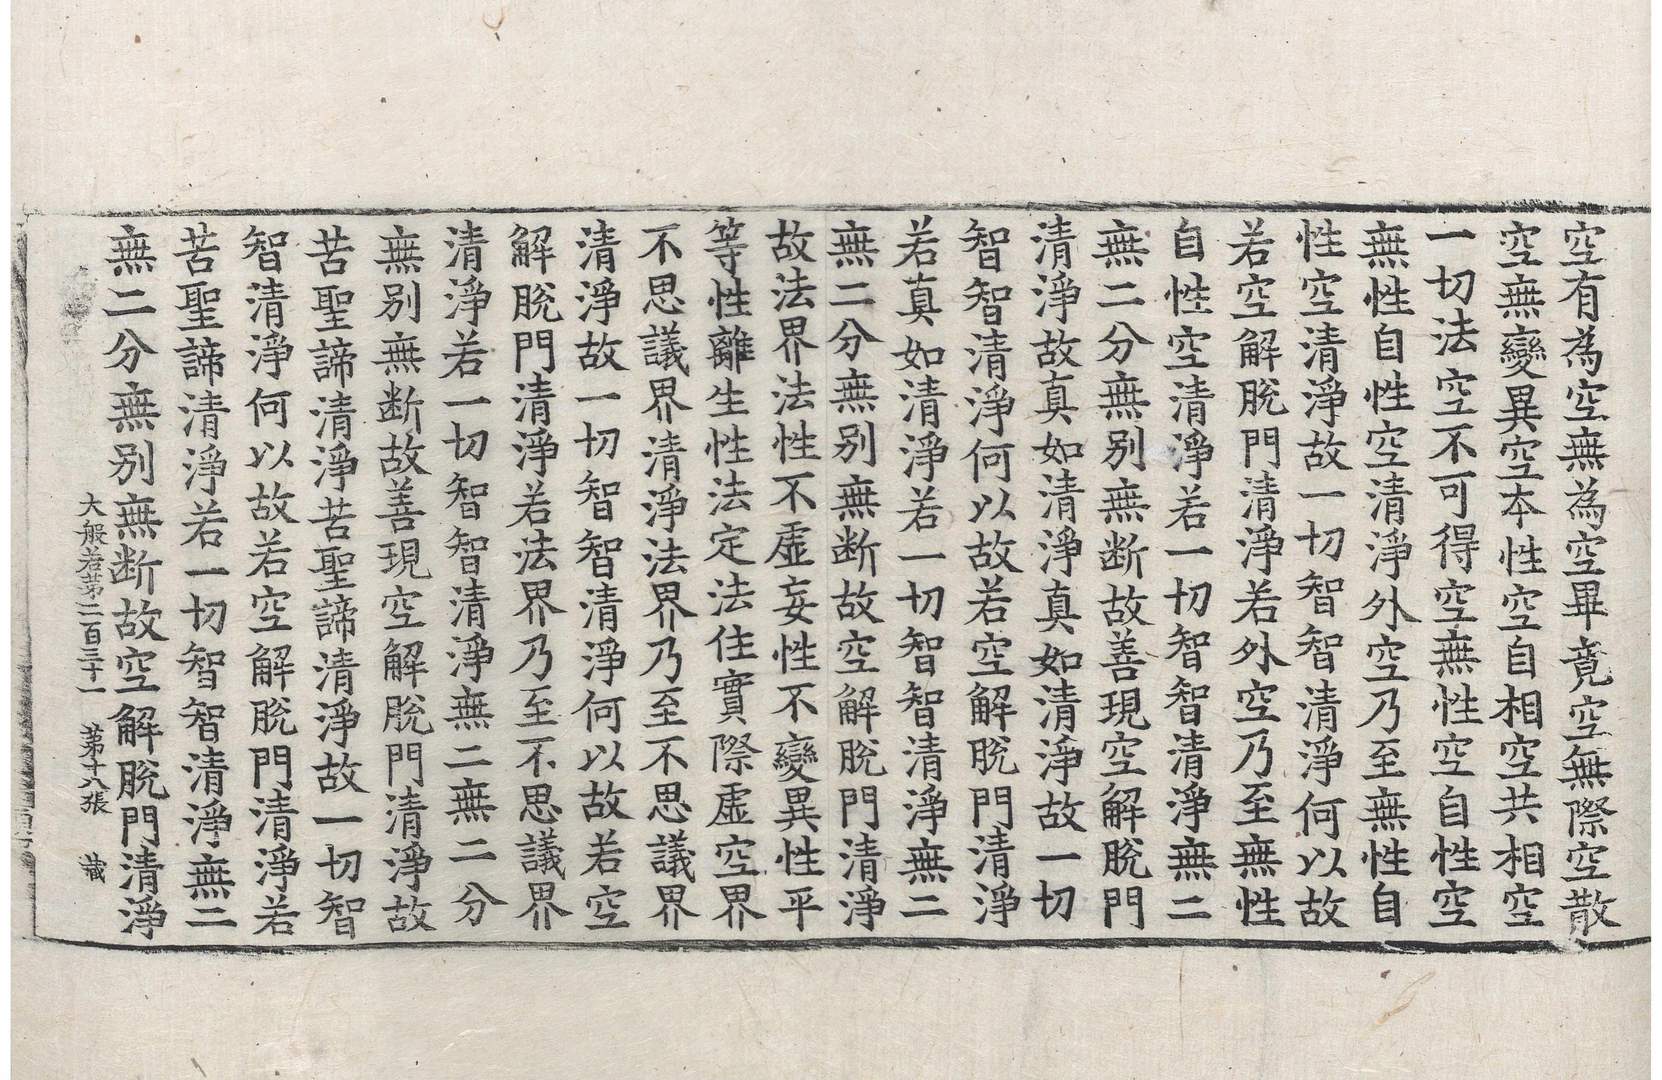 空有為空無為空畢竟空無際空散
空無變異空本性空自相空共相空
一切法空不可得空無性空自性空
無性自性空清淨外空乃至無性自
性空清淨故一切智智清淨何以故
若空解脫門清淨若外空乃至無性
自性空清淨若一切智智清淨無二
無二分無别無断故善現空解脫門
清淨故真如清淨真如清淨故一切
智智清淨何以故若空解脫門清淨
若真如清淨若一切智智清淨無二
無二分無别無断故空解脫門清淨
故法界法性不虛妄性不變異性平
等性離生性法定法住實際虛空界
不思議界清淨法界乃至不思議界
清淨故一切智智清淨何以故若空
解脫門清淨若法界乃至不思議界
清淨若一切智智清淨無二無二分
無别無断故善現空解脫門清淨故
苦聖諦清淨苦聖諦清淨故一切智
智清淨何以故若空解脫門清淨若
苦聖諦清淨若一切智智清淨無二
無二分無别無断故空解脫門清淨
大般若苐二百三十一 苐十八張 藏